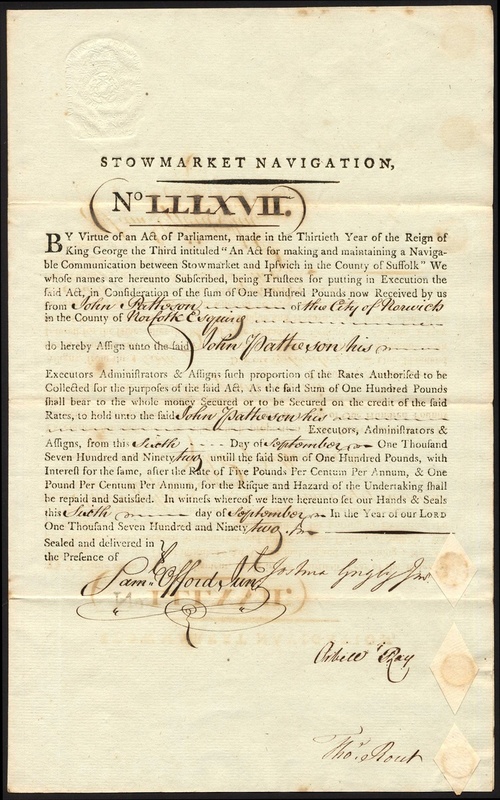 STOWMARKET NAVIGATION,
No LLLXVII.
BY Virtue of an Act of Parliament, made in the Thirtieth Year of the Reign of
King George the Third intituled "An Act for making and maintaining a Naviga-
ble Communication between Stowmarket and Ipſwich in the County of Suffolk" We
whoſe names are hereunto Subſcribed, being Truſtees for putting in Execution the
ſaid Act, in Conſideration of the ſum of One Hundred Pounds now Received by us
from John Patteson of the City of Norwich
in the County of Norfolk Esquire
do hereby Aſſign unto the ſaid John Patteson his
Executors Adminiſtrators & Aſſigns ſuch proportion of the Rates Authoriſed to be
Collected for the purpoſes of the ſaid Act, As the ſaid Sum of One Hundred Pounds
ſhall bear to the whole money Secured or to be Secured on the credit of the ſaid
Rates, to hold unto the ſaid John Patteson his
Executors, Adminiſtrators &
Aſſigns, from this Sixth Day of September One Thouſand
Seven Hundred and Ninety two untill the ſaid Sum of One Hundred Pounds, with
Intereſt for the ſame, after the Rate of Five Pounds Per Centum Per Annum, & One
Pound Per Centum Per Annum, for the Riſque and Hazard of the Undertaking ſhall
be repaid and Satisfied. In witneſs whereof we have hereunto ſet our Hands & Seals
this Sixth day of September In the Year of our LORD
One Thouſand Seven Hundred and Ninety two.
Sealed and delivered in
the Preſence of
Saml. Efford Junr. Joshua Grigby Junr
Ray
Thos. Rout